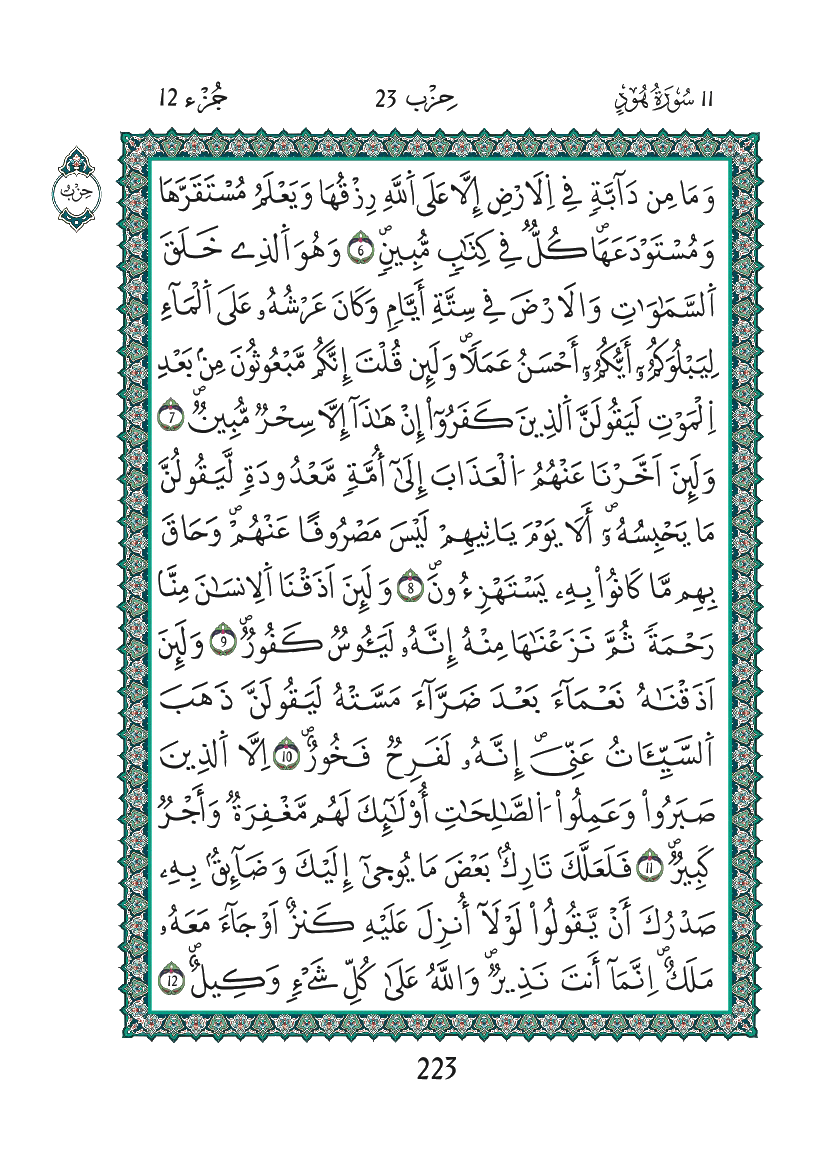 11 سُورَةُ هُودٍ
حِزْب 23
جُزْء 12
حِزْب
وَمَا مِن دَآبَّةٖ فِے اِ۬لَارْضِ إِلَّا عَلَي اَ۬للَّهِ رِزْقُهَا وَيَعْلَمُ مُسْتَقَرَّهَا
وَمُسْتَوْدَعَهَاۖ كُلّٞ فِے كِتَٰبٖ مُّبِينٖۖ 6 وَهُوَ اَ۬لذِے خَلَقَ
اَ۬لسَّمَٰوَٰتِ وَالَارْضَ فِے سِتَّةِ أَيَّامٖ وَكَانَ عَرْشُهُۥ عَلَي اَ۬لْمَآءِ
لِيَبْلُوَكُمُۥٓ أَيُّكُمُۥٓ أَحْسَنُ عَمَلاٗۖ وَلَئِن قُلْتَ إِنَّكُم مَّبْعُوثُونَ مِنۢ بَعْدِ
اِ۬لْمَوْتِ لَيَقُولَنَّ اَ۬لذِينَ كَفَرُوٓاْ إِنْ هَٰذَآ إِلَّا سِحْرٞ مُّبِينٞۖ 7
وَلَئِنَ اَخَّرْنَا عَنْهُمُ اُ۬لْعَذَابَ إِلَيٰٓ أُمَّةٖ مَّعْدُودَةٖ لَّيَقُولُنَّ
مَا يَحْبِسُهُۥٓۖ أَلَا يَوْمَ يَاتِيهِمْ لَيْسَ مَصْرُوفًا عَنْهُمْۖ وَحَاقَ
بِهِم مَّا كَانُواْ بِهِۦ يَسْتَهْزِءُونَۖ 8 وَلَئِنَ اَذَقْنَا اَ۬لِانسَٰنَ مِنَّا
رَحْمَةٗ ثُمَّ نَزَعْنَٰهَا مِنْهُ إِنَّهُۥ لَيَـُٔوسٞ كَفُورٞۖ 9 وَلَئِنَ
اَذَقْنَٰهُ نَعْمَآءَ بَعْدَ ضَرَّآءَ مَسَّتْهُ لَيَقُولَنَّ ذَهَبَ
اَ۬لسَّيِّـَٔاتُ عَنِّيَۖ إِنَّهُۥ لَفَرِحٞ فَخُورٌۖ 10 اِلَّا اَ۬لذِينَ
صَبَرُواْ وَعَمِلُواْ اُ۬لصَّٰلِحَٰتِ أُوْلَٰٓئِكَ لَهُم مَّغْفِرَةٞ وَأَجْرٞ
كَبِيرٞۖ 11 فَلَعَلَّكَ تَارِكُۢ بَعْضَ مَا يُوحَيٰٓ إِلَيْكَ وَضَآئِقُۢ بِهِۦ
صَدْرُكَ أَنْ يَّقُولُواْ لَوْلَآ أُنزِلَ عَلَيْهِ كَنزٌ اَوْ جَآءَ مَعَهُۥ
مَلَكٌۖ اِنَّمَآ أَنتَ نَذِيرٞۖ وَاللَّهُ عَلَيٰ كُلِّ شَےْءٖ وَكِيلٌۖ 12
223